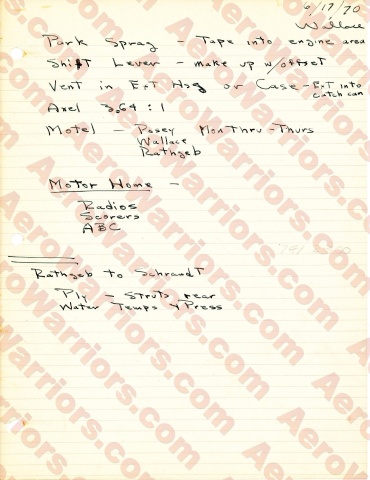 6/17/70
Wallace
Park Spray - Tape into engine area
Shift Lever - make up w/offset
Vent in Ext Hsg or Case - Ext into
catch can
Axel 3.64 : 1
Motel - Posey Mon Thru - Thurs
Wallace
Rathgeb
Motor Home -
Radios
Scorers
ABC
Rathgeb to Schrandt
Ply - Struts rear
Water Temps + Press
AeroWarriors.com